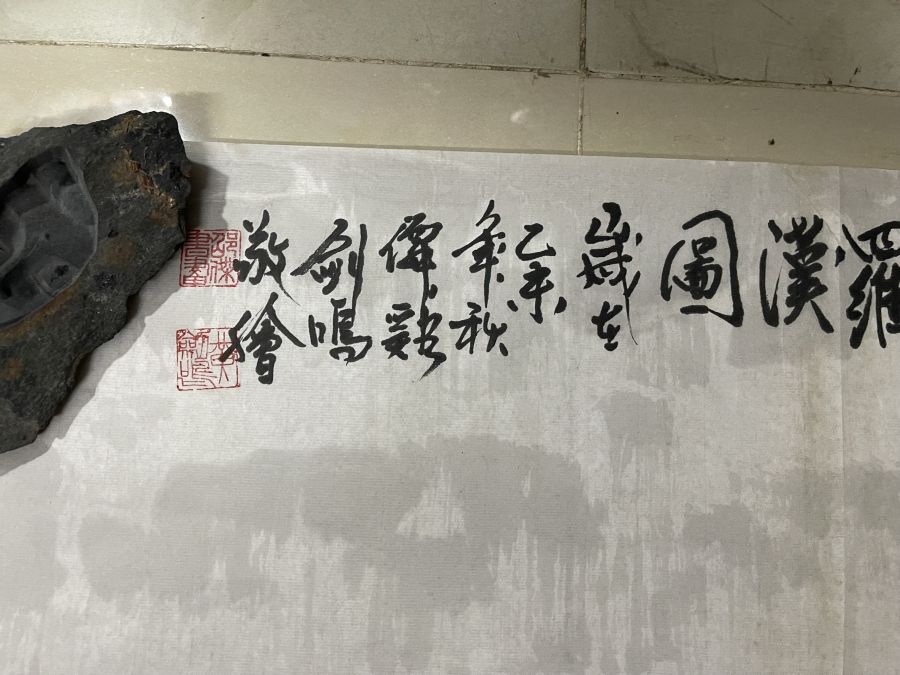 羅
漢
圖
歲在
乙未
年秋
劍鳴
敬繪